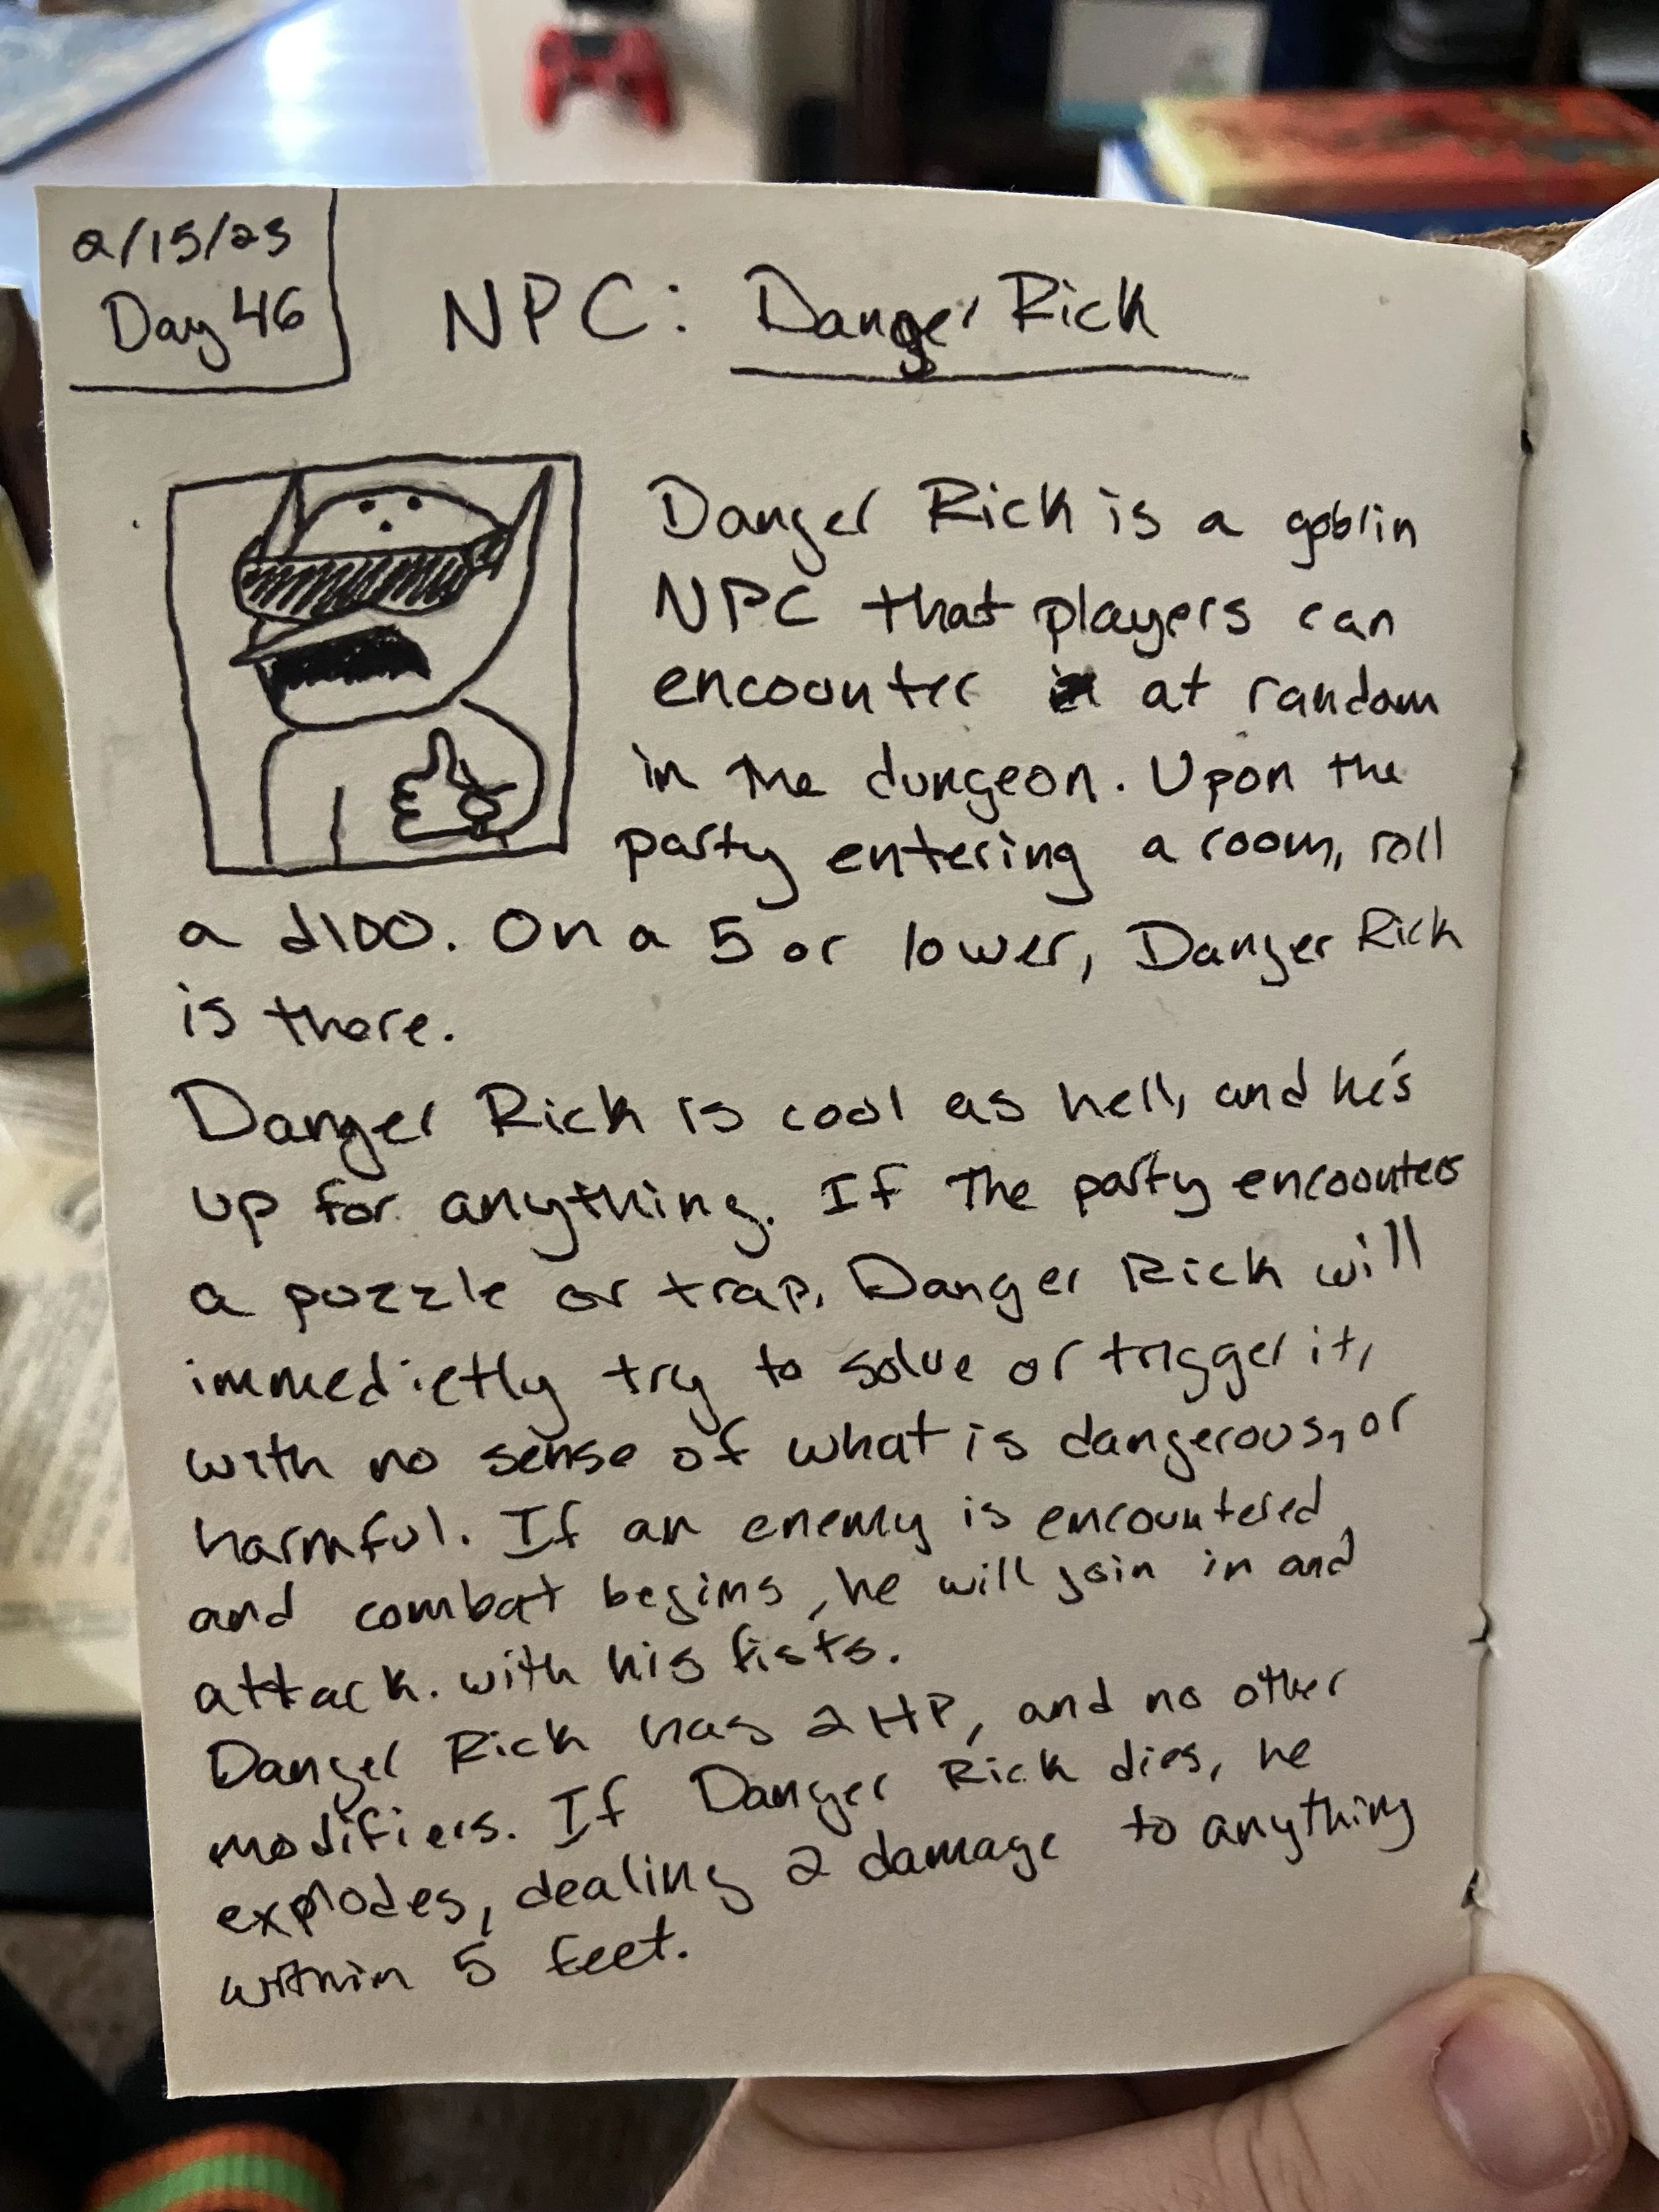 2/15/23
Day 46
NPC: Danger Rick
Danger Rick is a goblin
NPC that players can
encounter at random
in the dungeon. Upon the
party entering a room, roll
a d100. On a 5 or lower, Danger Rick
is there.
Danger Rick is cool as hell, and he's
up for anything. If the party encounters
a puzzle or trap, Danger Rick will
immedietly try to solve or trigger it,
with no sense of what is dangerous, or
harmful. If an enemy is encountered,
and combat begins, he will join in and
attack. with his fists.
Danger Rick has 2 HP, and no other
modifiers. If Danger Rick dies, he
explodes, dealing 2 damage to anything
within 5 feet.